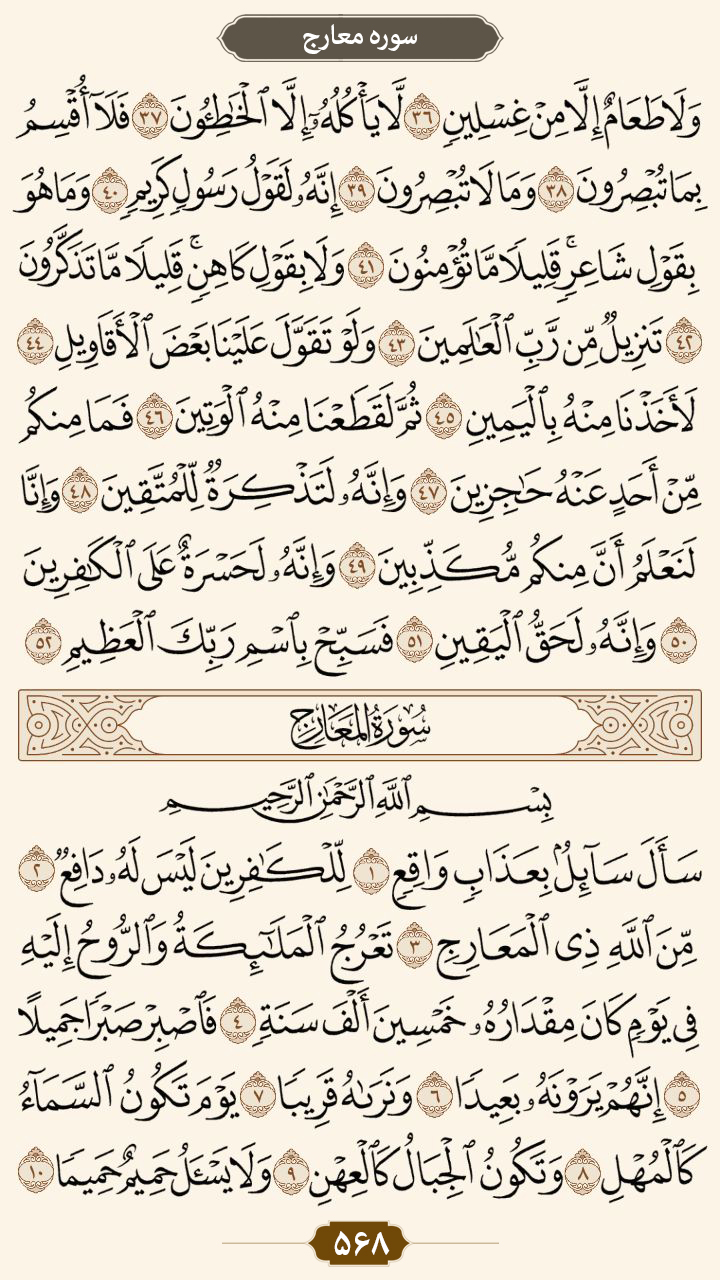 سوره معارج
وَلَا طَعَامٌ إِلَّا مِنْ غِسْلِينٍ ٣٦ لَّا يَأْكُلُهُۥٓ إِلَّا ٱلْخَٰطِـُٔونَ ٣٧ فَلَآ أُقْسِمُ
بِمَا تُبْصِرُونَ ٣٨ وَمَا لَا تُبْصِرُونَ ٣٩ إِنَّهُۥ لَقَوْلُ رَسُولٍ كَرِيمٍ ٤٠ وَمَا هُوَ
بِقَوْلِ شَاعِرٍ ۚ قَلِيلًا مَّا تُؤْمِنُونَ ٤١ وَلَا بِقَوْلِ كَاهِنٍ ۚ قَلِيلًا مَّا تَذَكَّرُونَ
٤٢ تَنزِيلٌ مِّن رَّبِّ ٱلْعَٰلَمِينَ ٤٣ وَلَوْ تَقَوَّلَ عَلَيْنَا بَعْضَ ٱلْأَقَاوِيلِ ٤٤
لَأَخَذْنَا مِنْهُ بِٱلْيَمِينِ ٤٥ ثُمَّ لَقَطَعْنَا مِنْهُ ٱلْوَتِينَ ٤٦ فَمَا مِنكُم
مِّنْ أَحَدٍ عَنْهُ حَٰجِزِينَ ٤٧ وَإِنَّهُۥ لَتَذْكِرَةٌ لِّلْمُتَّقِينَ ٤٨ وَإِنَّا
لَنَعْلَمُ أَنَّ مِنكُم مُّكَذِّبِينَ ٤٩ وَإِنَّهُۥ لَحَسْرَةٌ عَلَى ٱلْكَٰفِرِينَ
٥٠ وَإِنَّهُۥ لَحَقُّ ٱلْيَقِينِ ٥١ فَسَبِّحْ بِٱسْمِ رَبِّكَ ٱلْعَظِيمِ ٥٢
سُورَةُ المَعَارِجِ
بِسْمِ ٱللَّهِ ٱلرَّحْمَٰنِ ٱلرَّحِيمِ
سَأَلَ سَآئِلٌۢ بِعَذَابٍ وَاقِعٍ ١ لِّلْكَٰفِرِينَ لَيْسَ لَهُۥ دَافِعٌ ٢
مِّنَ ٱللَّهِ ذِى ٱلْمَعَارِجِ ٣ تَعْرُجُ ٱلْمَلَٰٓئِكَةُ وَٱلرُّوحُ إِلَيْهِ
فِى يَوْمٍ كَانَ مِقْدَارُهُۥ خَمْسِينَ أَلْفَ سَنَةٍ ٤ فَٱصْبِرْ صَبْرًا جَمِيلًا
٥ إِنَّهُمْ يَرَوْنَهُۥ بَعِيدًا ٦ وَنَرَىٰهُ قَرِيبًا ٧ يَوْمَ تَكُونُ ٱلسَّمَآءُ
كَٱلْمُهْلِ ٨ وَتَكُونُ ٱلْجِبَالُ كَٱلْعِهْنِ ٩ وَلَا يَسْـَٔلُ حَمِيمٌ حَمِيمًا ١٠
۵۶۸